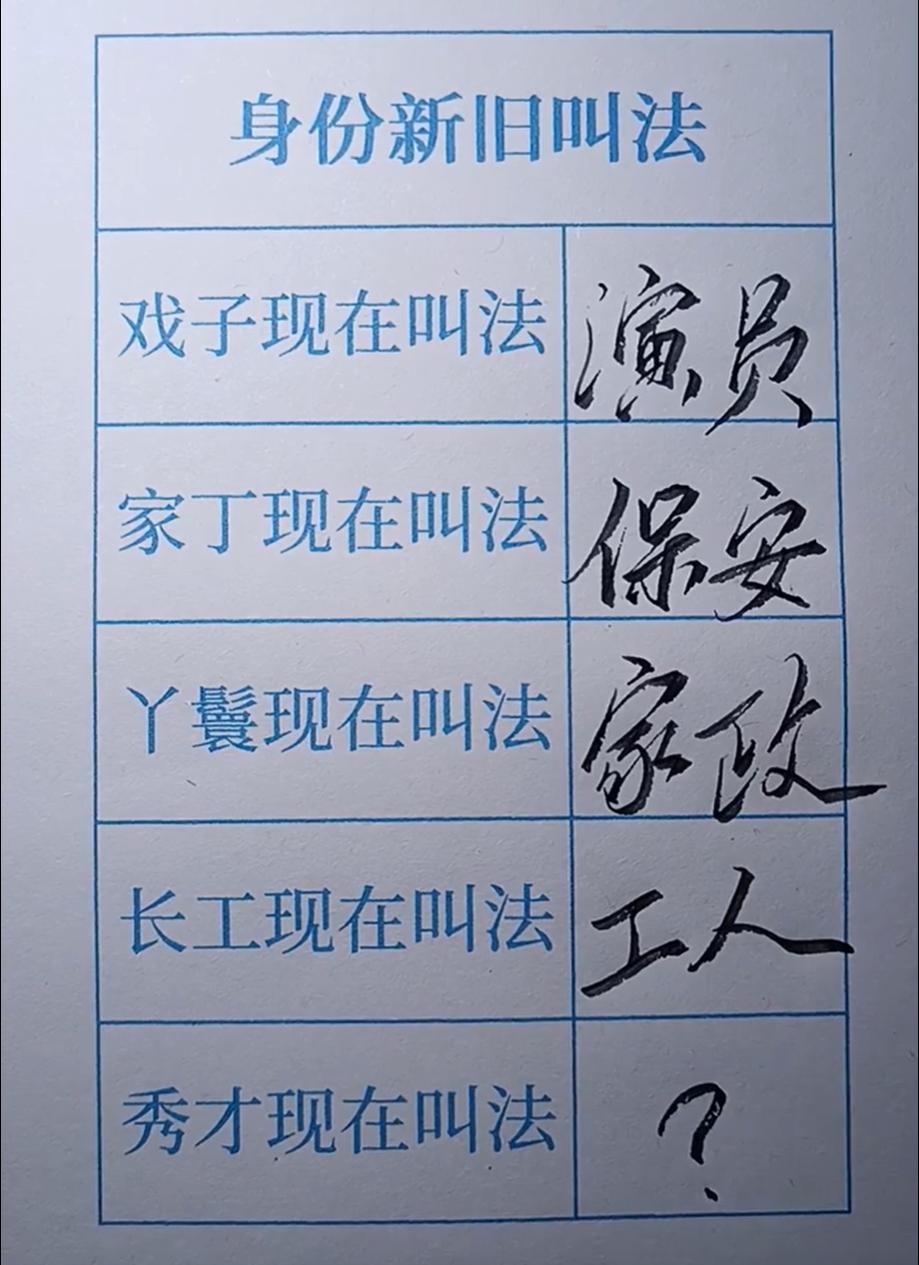 身份新旧叫法
戏子现在叫法 演员
家丁现在叫法 保安
丫鬟现在叫法 家政
长工现在叫法 工人
秀才现在叫法 ?